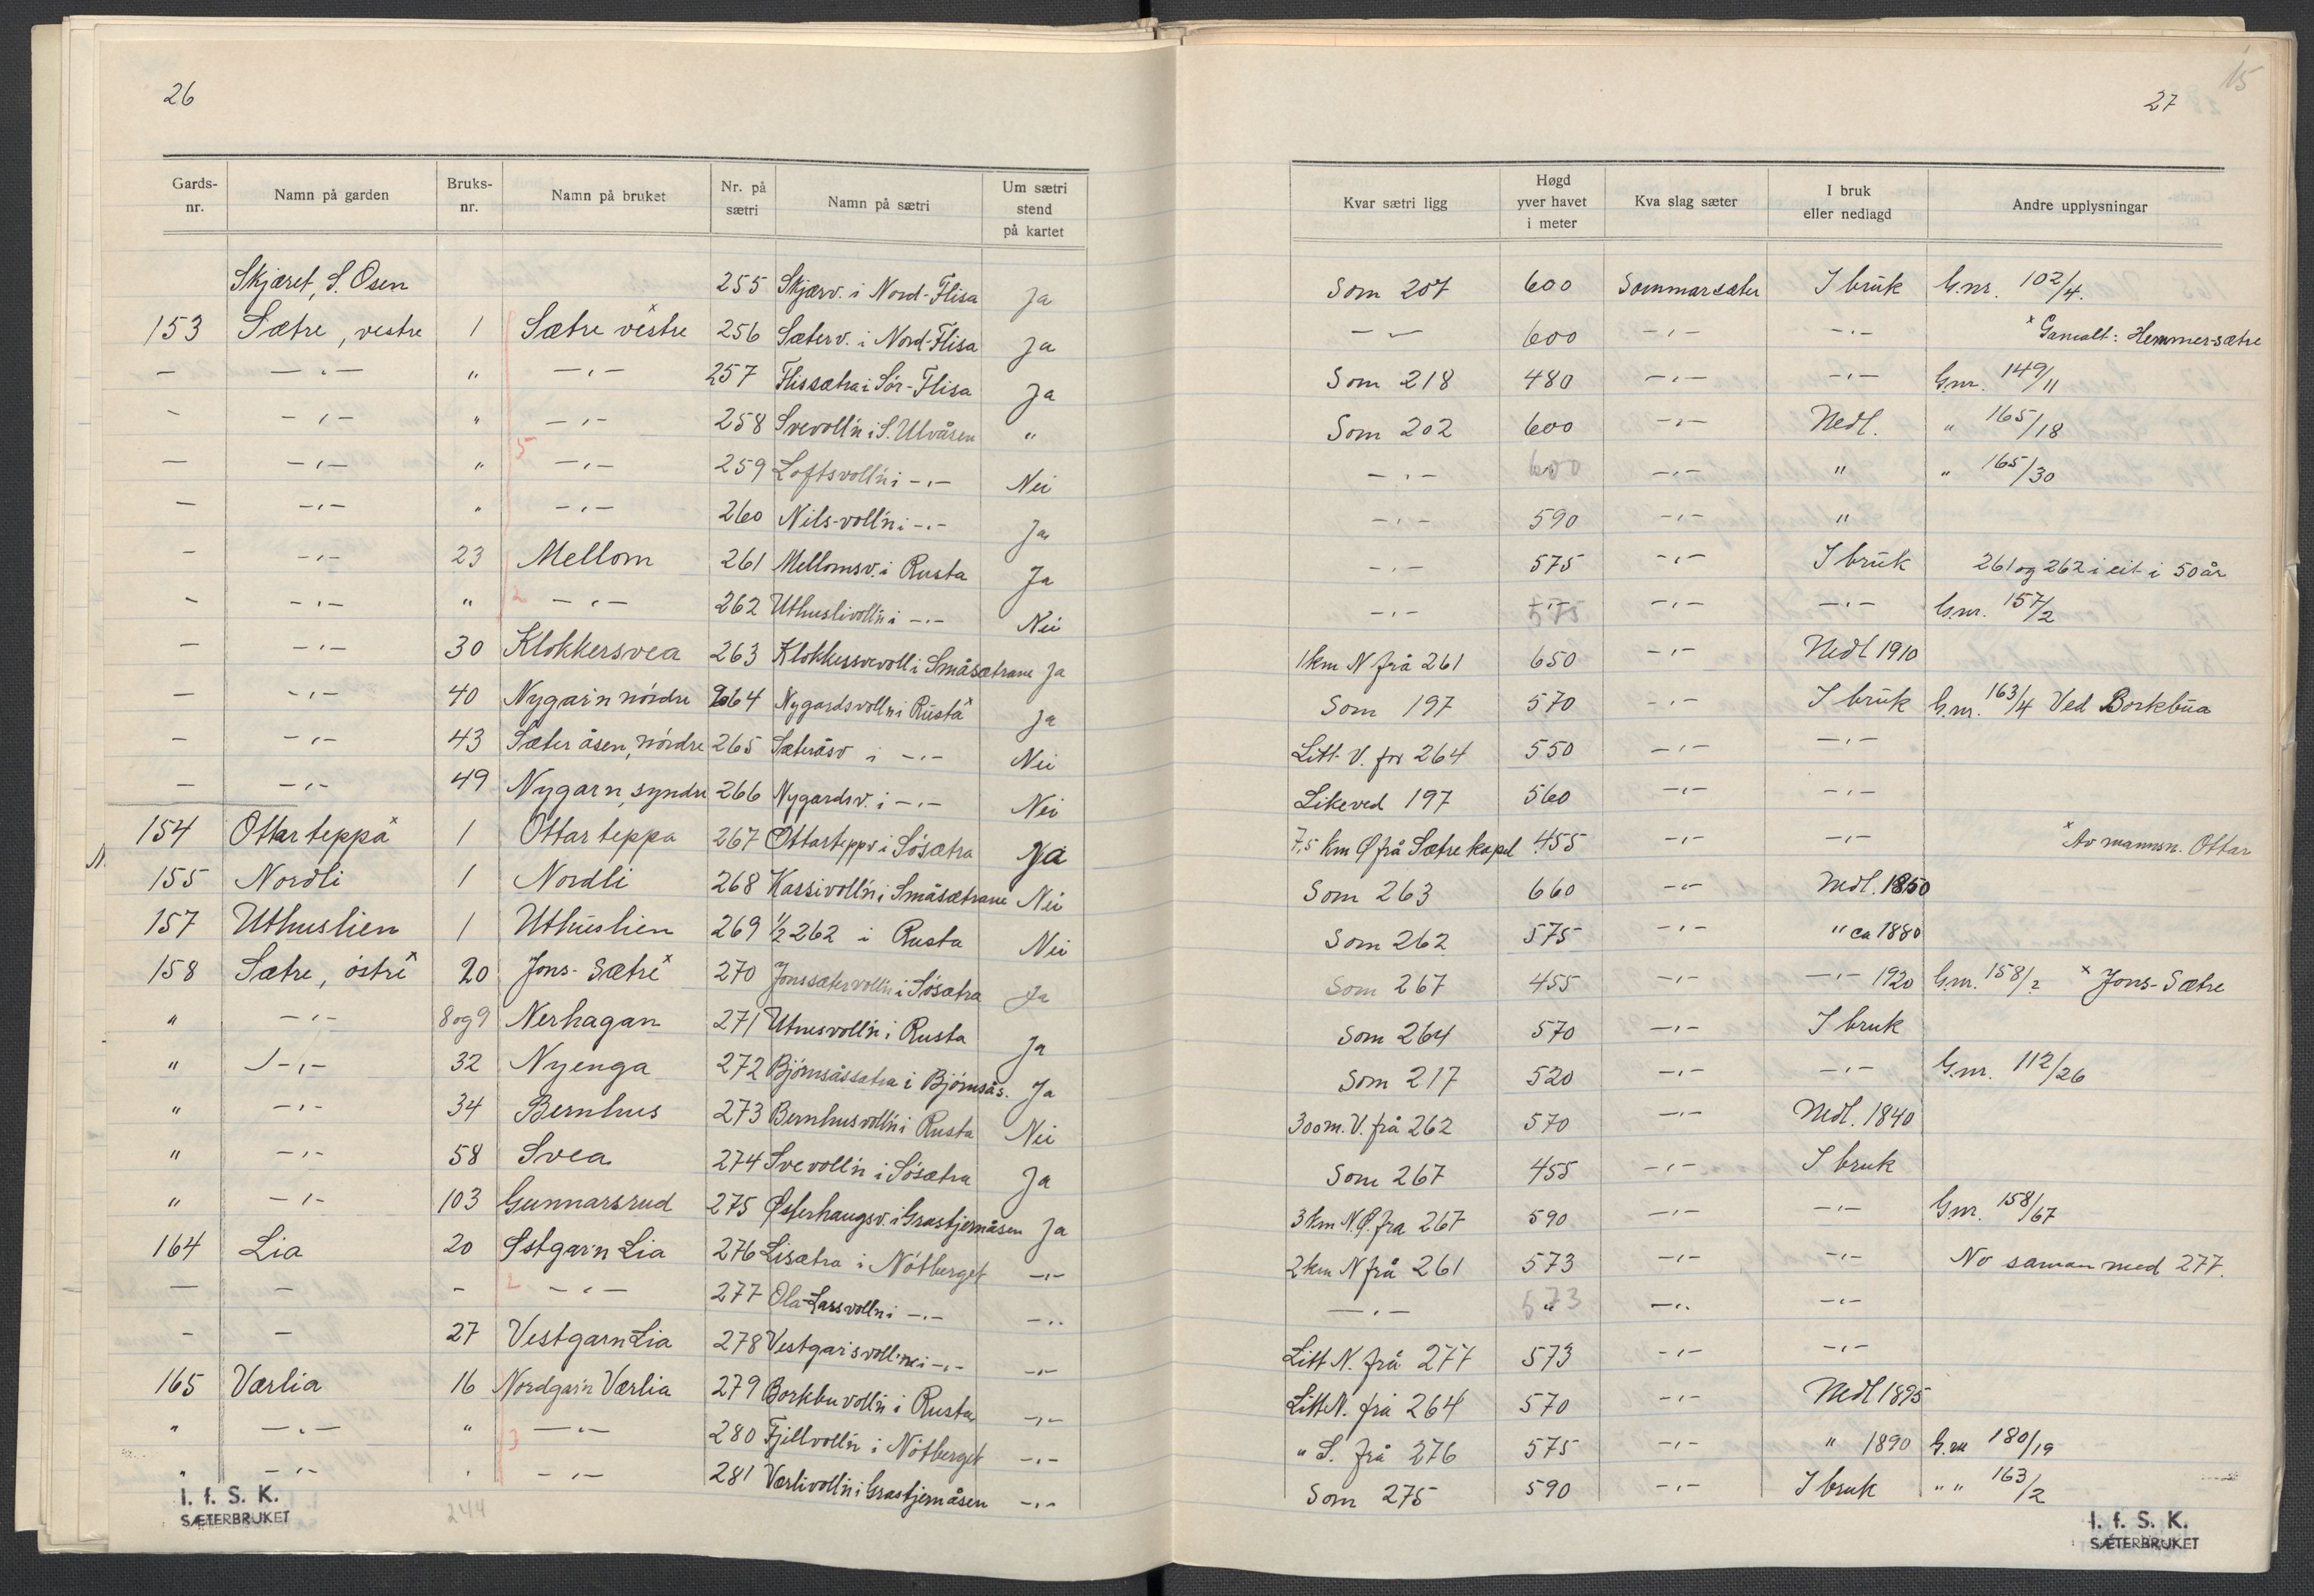 26
Gards-nr. | Namn på garden | Bruks-nr. | Namn på bruket | Nr. på sætri | Namn på sætri | Um sætri stend på kartet
Skjæret, S. Osen | 255 | Skjærv. i Nord-Flisa | Ja
153 | Sætre, vestre | 1 | Sætre vestre x | 256 | Sæterv. i Nord-Flisa | Ja
— | —"— | " | —"— | 257 | Flissætra i Sør-Flisa | Ja
- | -"- | " | -"- | 258 | Svevoll'n i S. Ulvåsen | "
— | -"- | " | 5 -"- | 259 | Loftsvoll'n i -"- | Nei
— | -"- | " | -"- | 260 | Nils-voll'n i -"- | Ja
- | -"- | 23 | Mellom | 261 | Mellomsv. i Rusta | Ja
- | -"- | " | 2 -"- | 262 | Uthuslivoll'n i -"- | Nei
— | -"- | 30 | Klokkersvea | 263 | Klokkersvevoll i Småsætrane | Ja
— | -"- | 40 | Nygar'n nórdre | 264 | Nygardsvoll'n i Rusta x | Ja
- | -"- | 43 | Sæter åsen, nórdre | 265 | Sæteråsv i -"- | Nei
— | -"- | 49 | Nygar'n, syndre | 266 | Nygardsv. i -"- | Nei
154 | Ottarteppa x | 1 | Ottarteppa | 267 | Ottarteppv i Sósætra | Ja
N. 155 | Nordli | 1 | Nordli | 268 | Kassivoll'n i Småsætrane | Nei
157 | Uthuslien | 1 | Uthuslien | 269 | ½ 262 i Rusta | Nei
158 | Sætre, óstre x | 20 | Jons-Sætre x | 270 | Jonssætervoll'n i Sósætra | Ja
" | -"- | 8 og 9 | Nerhagan | 271 | Utnesvoll'n i Rusta | Ja
" | -"- | 32 | Nyenga | 272 | Bjórnsåssætra i Bjórnsås. | Ja
" | -"- | 34 | Bernhus | 273 | Bernhusvoll'n i Rusta | Nei
" | -"- | 58 | Svea | 274 | Svevoll'n i Sósætra | Ja
" | -"- | 103 | Gunnarsrud | 275 | Østerhaugsv. i Grastjernåsen | Ja
164 | Lia | 20 | Østgar'n Lia | 276 | Lisætra i Nótberget | -"-
— | — | - | 2 -"- | 277 | Ola-Larsvoll'n i -"- | -"-
- | — | 27 | Vestgarn Lia | 278 | Vestgarsvoll'n i -"- | -"-
165 | Værlia | 16 | Nordgar'n Værlia | 279 | Borkbuvoll'n i Rusta | -"-
" | -"- | " | 3 -"- | 280 | Fjellvoll'n i Nótberget | -"-
" | -"- | " | -"- | 281 | Værlivoll'n i Grastjernåsen | -"-
244
I. f. S. K.
SÆTERBRUKET
15
27
Kvar sætri ligg | Høgd yver havet i meter | Kva slag sæter | I bruk eller nedlagd | Andre upplysningar
Som 207 | 600 | Sommarsæter | I bruk | G.nr. 102/4.
-"- | 600 | -"- | -"- | x Gamalt: Hemmer-sætre
Som 218 | 480 | -"- | -"- | G.nr. 149/11
Som 202 | 600 | -"- | Nedl. | " 165/18
-"- | 600 | -"- | " | " 165/30
-"- | 590 | -"- | "
-"- | 575 | -"- | I bruk | 261 og 262 i eit i 50 år
-"- | 575 | -"- | -"- | G.nr. 157/2
1 km N frå 261 | 650 | -"- | Nedl 1910
Som 197 | 570 | -"- | I bruk | G.nr. 163/4 Ved Borkbua
Litt V. for 264 | 550 | -"- | -"-
Like ved 197 | 560 | -"- | -"-
7,5 km Ø frå Sætre kapel | 455 | -"- | -"- | x Av mannsn. Ottar
Som 263 | 660 | -"- | Nedl. 1850
Som 262 | 575 | -"- | " ca 1880
Som 267 | 455 | -"- | -"- 1920 | G.nr. 158/2 x Jons-Sætre
Som 264 | 570 | -"- | I bruk
Som 217 | 520 | -"- | -"- | G.nr. 112/26
300 m. V. frå 262 | 570 | -"- | Nedl. 1840
Som 267 | 455 | -"- | I bruk
3 km N.Ø. fra 267 | 590 | -"- | -"- | G.nr. 158/67
2 km N frå 261 | 573 | -"- | -"- | No saman med 277.
-"- | 573 | -"- | -"-
Litt N. frå 277 | 573 | -"- | -"-
Litt N. frå 264 | 570 | -"- | Nedl 1895
" S. frå 276 | 575 | -"- | " 1890 | G.nr 180/19
Som 275 | 590 | -"- | I bruk | " " 163/2
I. f. S. K.
SÆTERBRUKET